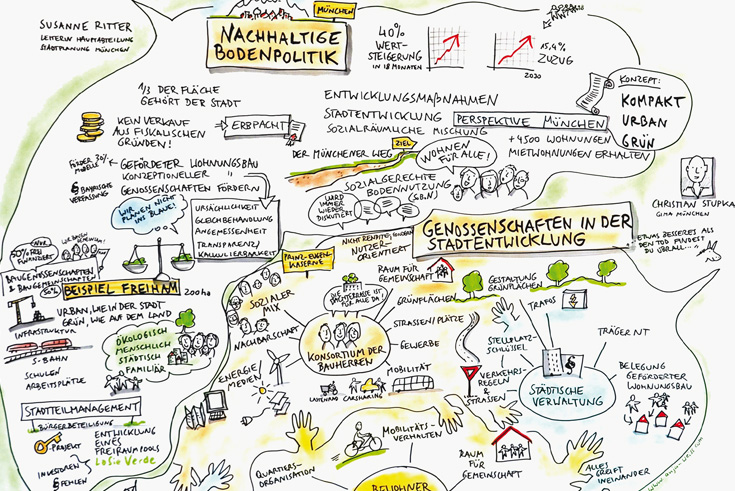 SUSANNE RITTER
LEITERIN HAUPTABTEILUNG
STADTPLANUNG MÜNCHEN
MÜNCHEN
NACHHALTIGE
BODENPOLITIK
40%
WERT-
STEIGERUNG
IN 18 MONATEN
15,4%
ZUZUG
2030
KONZEPT:
KOMPAKT
URBAN
GRÜN
1/3 DER FLÄCHE
GEHÖRT DER STADT
KEIN VERKAUF
AUS FISKALISCHEN
GRÜNDEN!
ERBPACHT
ENTWICKLUNGSMAßNAHMEN
STADTENTWICKLUNG
SOZIALRÄUMLICHE MISCHUNG
PERSPEKTIVE MÜNCHEN
+4500 WOHNUNGEN
MIETWOHNUNGEN ERHALTEN
DER MÜNCHENER WEG
ZIEL
WOHNEN
FÜR ALLE!
MODELLE
§ BAYRISCHE
VERFASSUNG
GEFÖRDETER WOHNUNGSBAU
KONZEPTIONELLER
GENOSSENSCHAFTEN FÖRDERN
WIR PLANEN NICHT
INS BLAUE!
URSÄCHLICHKEIT
GLEICHBEHANDLUNG
ANGEMESSENHEIT
TRANSPARENZ/
KALKULIERBARKEIT
SOZIALGERECHTE
BODENNUTZUNG
(SOBON)
WIRD
IMMER
WIEDER
DISKUTIERT
CHRISTIAN STUPKA
GIMA MÜNCHEN
GENOSSENSCHAFTEN IN DER
STADTENTWICKLUNG
ETWAS BESSERES ALS
DEN TOD FINDEST
DU ÜBERALL...
NUR
50% FREI
FINANZIERT
BAUGENOSSENSCHAFTEN
& BAUGEMEINSCHAFTEN
BEISPIEL FREIHAM
200 ha
URBAN, WIE IN DER STADT
GRÜN, WIE AUF DEM LAND
INFRASTRUKTUR
S-BAHN
SCHULEN
ARBEITSPLÄTZE
ÖKOLOGISCH
MENSCHLICH
STÄDTISCH
FAMILIÄR
STADTTEILMANAGEMENT
BÜRGERBETEILIGUNG
-PROJEKT
INVESTOREN
FEHLEN
ENTWICKLUNG
EINES
FREIRAUMTOOLS
LoSio Verde
PRINZ-EUGEN-
KASERNE
NICHT RENDITE, SONDERN
NUTZER-
ORIENTIERT
SOZIALER
MIX
NACHBARSCHAFT
DACHTERRASSE IST
FÜR ALLE DA!
KONSORTIUM DER
BAUHERREN
RAUM FÜR
GEMEINSCHAFT
GRÜNFLÄCHEN
STRASSEN/PLÄTZE
GEWERBE
MOBILITÄT
LASTENRAD CARSHARING
ENERGIE
MEDIEN
GESTALTUNG
GRÜNFLÄCHEN
TRAFOS
STELLPLATZ-
SCHLÜSSEL
VERKEHRS-
REGELN
& STRASSEN
TRÄGER NT
STÄDTISCHE
VERWALTUNG
BELEGUNG
GEFÖRDERTER
WOHNUNGSBAU
MOBILITÄTS-
VERHALTEN
QUARTIERS-
ORGANISATION
BEWOHNER
RAUM
FÜR
GEMEINSCHAFT
ALLES
GREIFT
INEINANDER